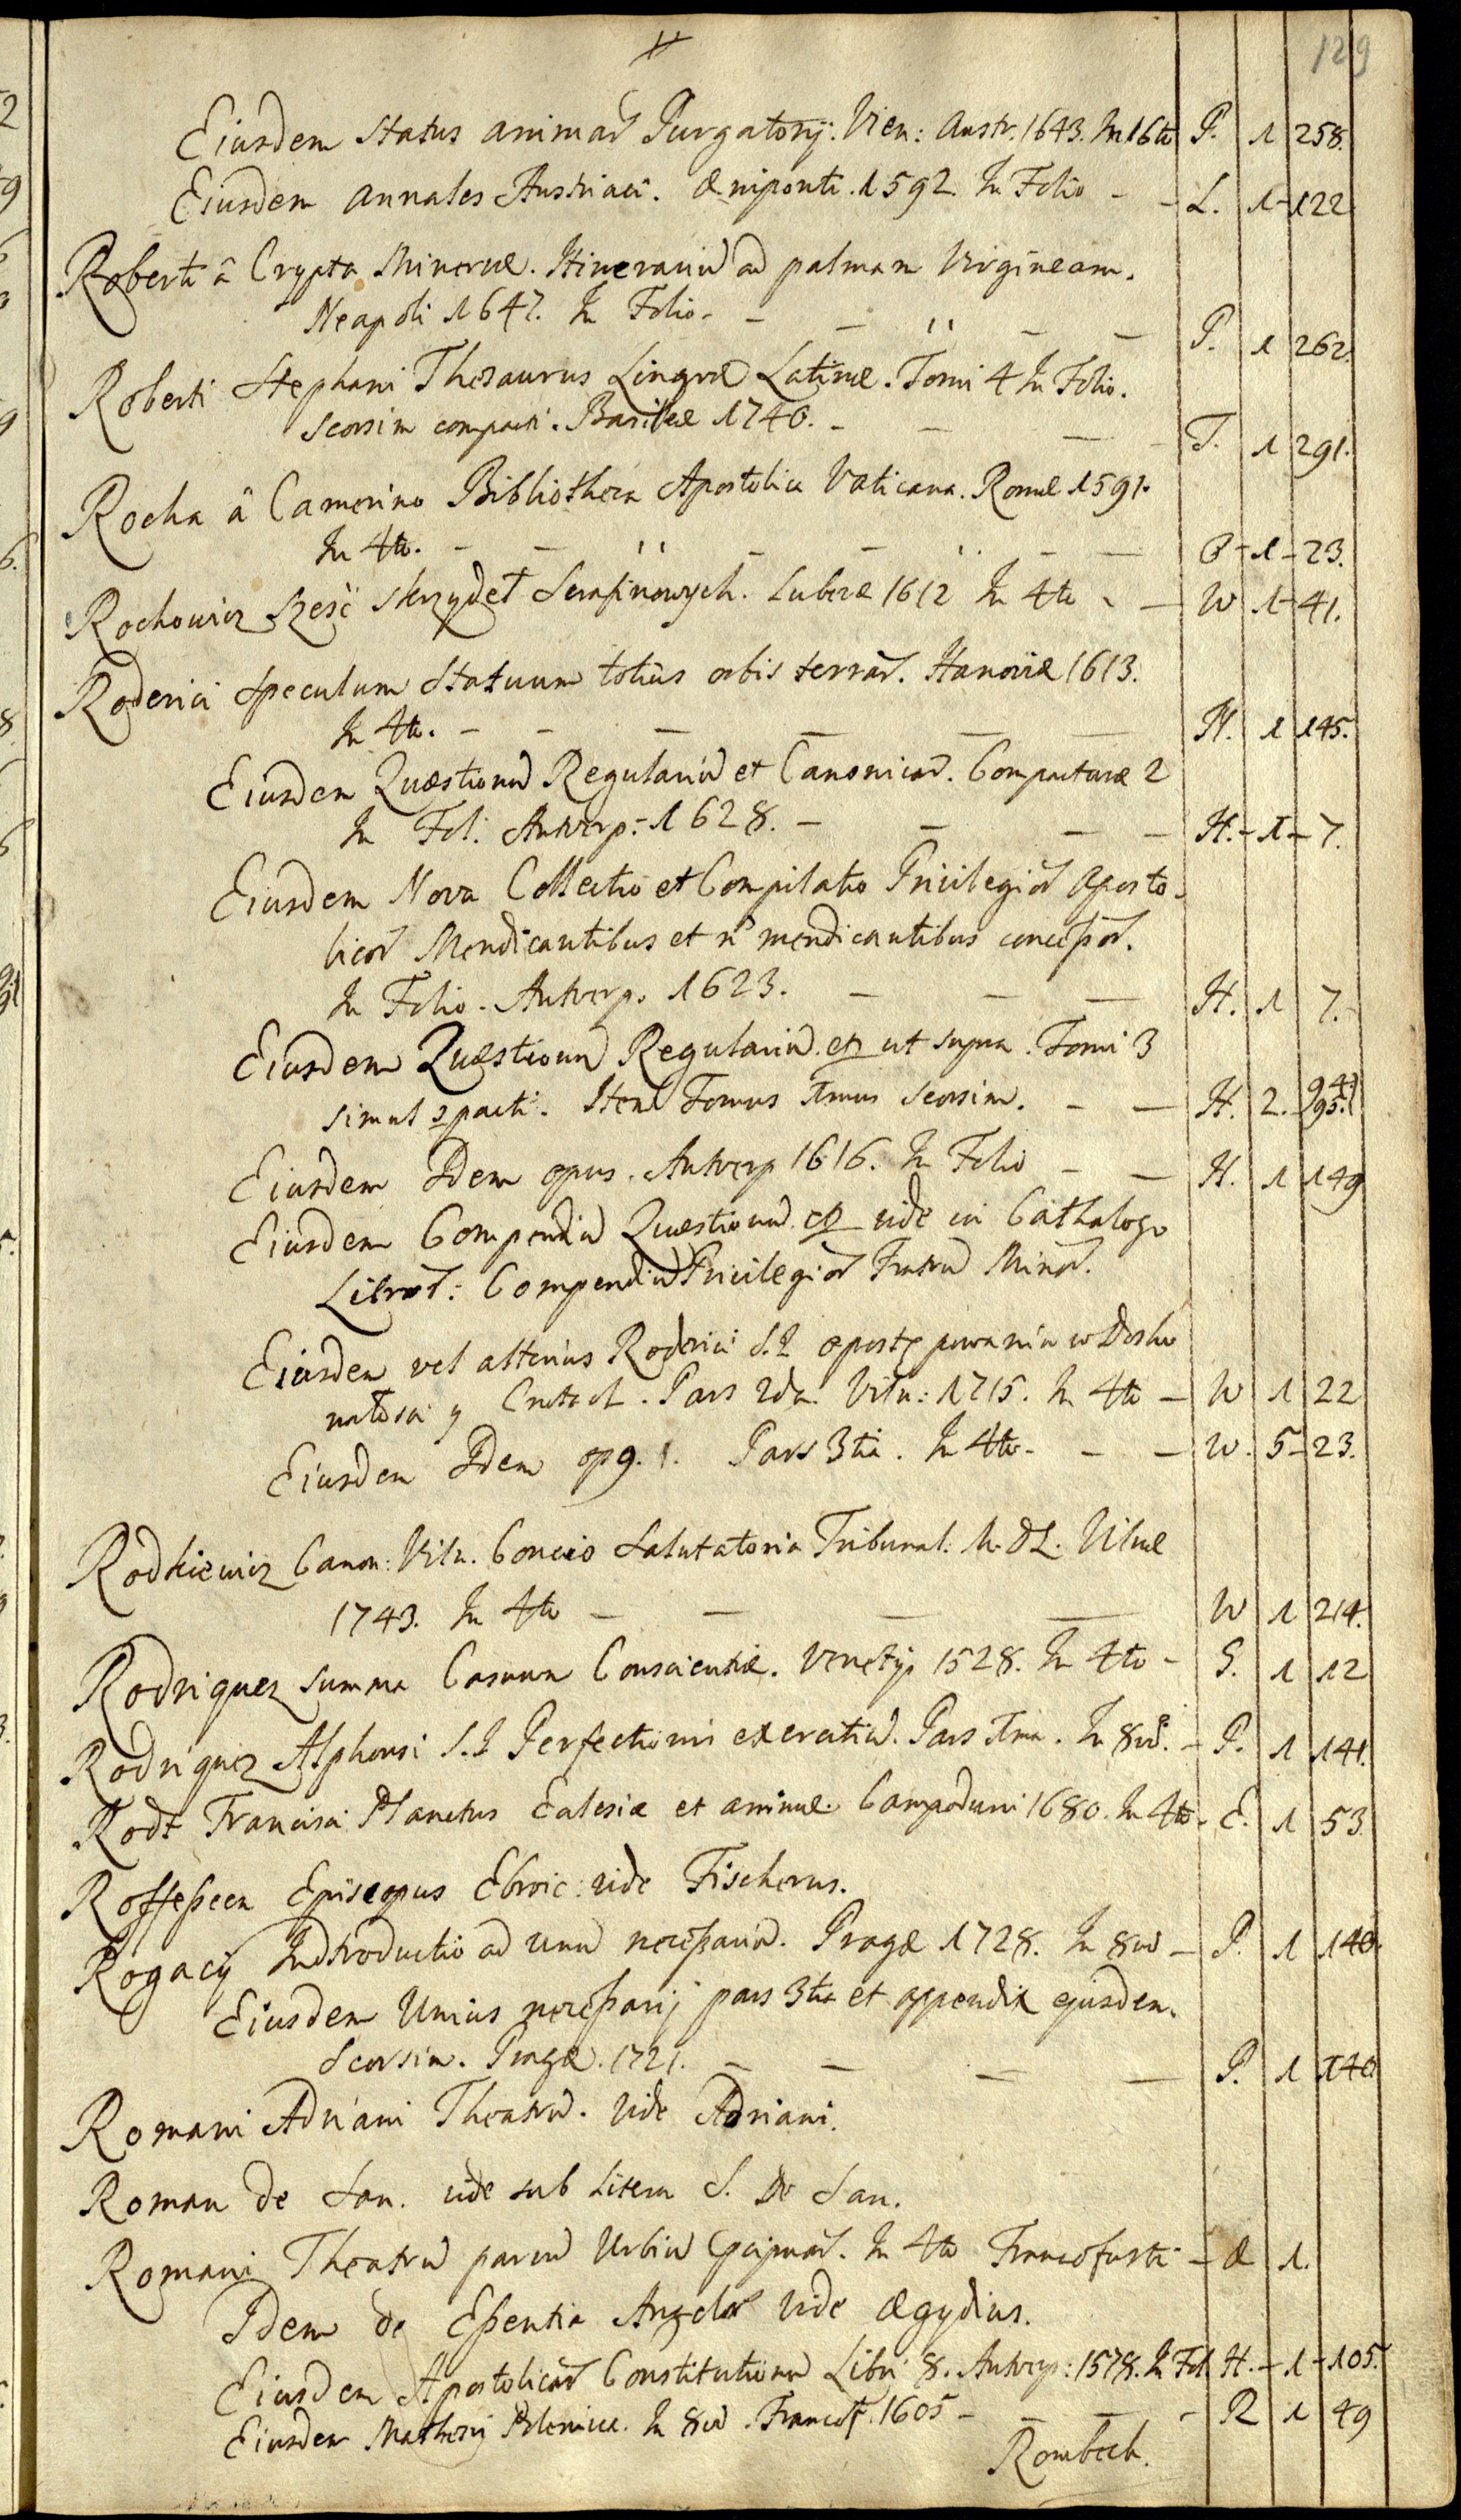 129
Eiusdem Status animar Purgatorij. Vien: Austr. 1643. In 16to P. 1 258.
Eiusdem Annales Austriaci. Œniponti. 1592. In Folio - - L. 1 - 122
Roberti â Crypta Minervæ. Itinerariu ad palmam Virgineam.
Neapoli 1647. In Folio. - - - - - P. 1 262.
Roberti Stephani Thesaurus Linguæ Latinæ. Tomi 4 In Folio.
Seorsim compacti. Basileæ 1740. - - - - T. 1 291.
Rocha â Camerino Bibliotheca Apostolica Vaticana. Romæ 1591.
In 4to. - - - - - - B - 1 - 23.
Rochowicz Szesć skrzydeł Serafinowych. Lubcæ 1612 In 4to - - W 1 - 41.
Roderici Speculum Statuum totius orbis terrar. Hanoviæ 1613.
In 4to. - - - - - - H. 1 145.
Eiusdem Quæstionu Regulariu et Canonicar. Compacturæ 2
In Fol. Antverp: 1628. - - - - H. - 1 - 7.
Eiusdem Nova Collectio et Compilatio Privilegior Aposto-
licor Mendicantibus et n mendicantibus concessor.
In Folio. Antverp. 1623. - - - H. 1 7.
Eiusdem Quæstionu Regulariu. etc ut supra. Tomi 3
simul compacti. Item Tomus 1mus seorsim. - - H. 2. 94. 95.
Eiusdem Idem opus. Antverp 1616. In Folio - - H. 1 149
Eiusdem Compendiu Quæstionu. etc vide in Cathalogo
Libror: Compendiu Privilegior Fratru Minor.
Eiusdem vel alterius Roderici S.I. o postępowaniu w Dosko
nałosci y Cnotach. Pars 2da. Viln: 1715. In 4to - W 1 22
Eiusdem Idem op9. 1. Pars 3tia. In 4to - - - W. 5 - 23.
Rodkiewicz Canon: Viln. Concio Salutatoria Tribunal. M. D L. Vilnæ
1743. In 4to - - - - W 1 214.
Rodriguez Summa Casuum Conscientiæ. Venetijs 1528. In 4to - S. 1 12
Rodriguez Alphonsi S.I. Perfectionis exercitiu. Pars 1ma. In 8vo. - P. 1 141.
Rodt Francisci Planctus Ecclesiæ et animæ. Campoduni 1680. In 4to - E. 1 53.
Roffessen Episcopus Ebroic: vide Fischerus.
Rogacij Indroductio ad unu necessariu. Pragæ 1728. In 8vo - P. 1 140.
Eiusdem Unius necessarij pars 3tia et appendix ejusdem.
Seorsim. Pragæ. 1721. - - - - P. 1 140
Romani Adriani Theatru. vide Adriani.
Roman de San. vide sub Litera S. De San.
Romani Theatru parvu Urbiu præcipuar. In 4to Francofurti - Æ 1.
Idem de Essentia Angelor vide Ægydius.
Eiusdem Apostolicar Constitutionu Libri 8. Antverp: 1578. In Fol H. - 1 - 105.
Eiusdem Mathesis Polemica. In 8vo. Francof. 1605 - - - - R 1 49
Rombech.